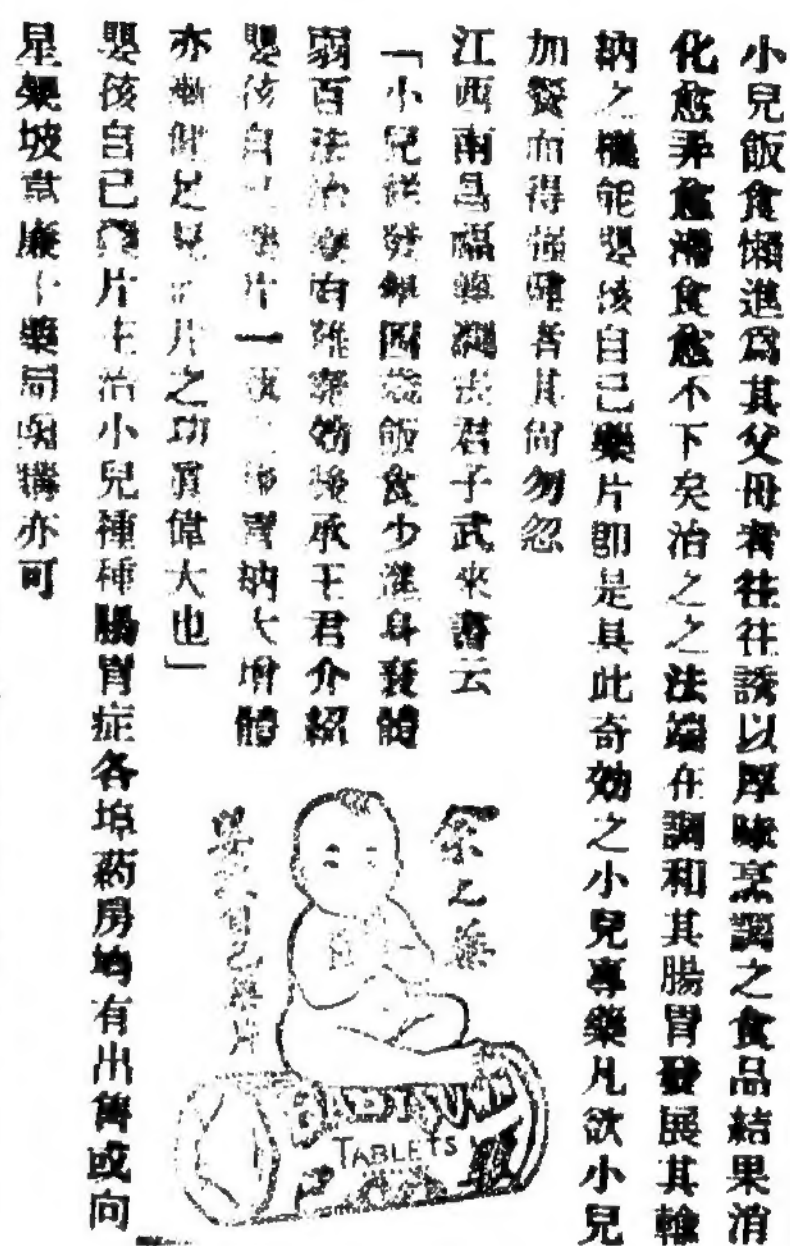 小兒飯食懶進爲其父母者往往誘以厚味烹調之食品結果消
化愈弄愈滯食愈不下矣治之之法端在調和其腸胃發展其輸
納之機能嬰孩自己藥片即是具此奇効之小兒專藥凡欲小兒
加餐而得強健者其尙勿忽
江西南昌福 君子武來書云
「小兒 發年四歲飯食少進身衰體
弱百法治 奏効 承王君介紹
嬰孩自己藥片一 胃納大增體
亦漸健足見 片之功眞偉大也」
嬰孩自己藥片主治小兒種種腸胃症各埠葯房均有出售或向
星架坡韋廉士藥局函購亦可
余之藥
嬰孩自己藥片
BABY'S OWN
TABLETS